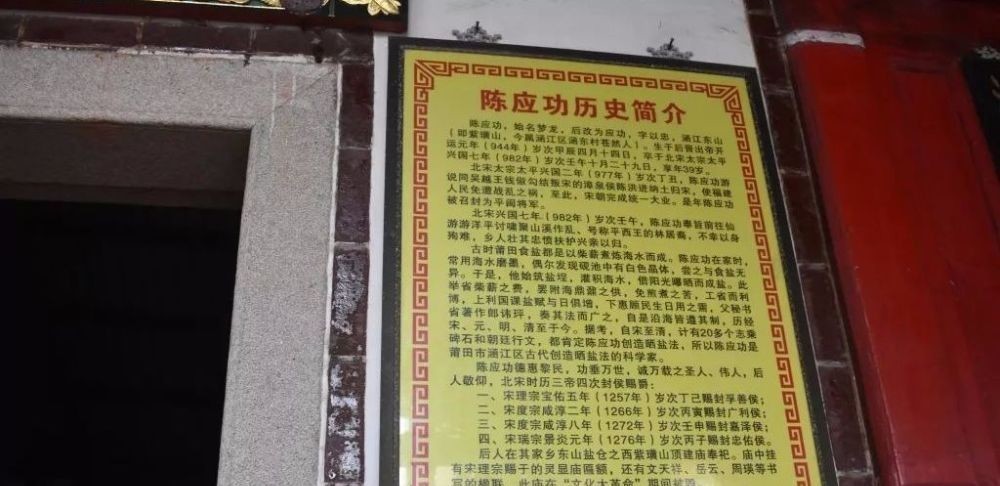 陈应功历史简介
陈应功，始名梦龙，后改为应功，字以忠，涵江东山
（即紫璜山，今属涵江区涵东村苍然人）。生于后晋出帝开
运元年（944年）岁次甲辰四月十四日，卒于北宋太宗太平
兴国七年（982年）岁次壬午十月二十九日，享年39岁。
北宋太宗太平兴国二年（977年）岁次丁丑，陈应功游
说同吴越王钱俶勾结叛宋的漳泉侯陈洪进纳土归宋，使福建
人民免遭战乱之祸，至此，宋朝完成统一大业。是年陈应功
被召封为平闽将军。
北宋兴国七年（982年）岁次壬午，陈应功奉旨前往仙
游游洋平讨啸聚山溪作乱、号称平西王的林居裔，不幸以身
殉难，乡人壮其忠愤扶护兴亲以归。
古时莆田食盐都是以柴薪煮炼海水而成。陈应功在家时，
常用海水磨墨，偶尔发现砚池中有白色晶体，尝之与食盐无
异。于是，他始筑盐埕，灌积海水，借阳光曝晒而成盐。此
举省柴薪之费，罢附海鼎鼐之供，免煎煮之苦，工省而利
博，上利国课盐赋与日俱增，下惠顾民生日用之需，父秘书
省著作郎讳玶，奏其法而广之，自是沿海皆遵其制，历经
宋、元、明、清至于今。据考，自宋至清，计有20多个志乘
碑石和朝廷行文，都肯定陈应功创造晒盐法，所以陈应功是
莆田市涵江区古代创造晒盐法的科学家。
陈应功德惠黎民，功垂万世，诚万载之圣人、伟人，后
人敬仰，北宋时历三帝四次封侯赐爵：
一、宋理宗宝佑五年（1257年）岁次丁己赐封孚善侯；
二、宋度宗咸淳二年（1266年）岁次丙寅赐封广利侯；
三、宋度宗咸淳八年（1272年）岁次壬申赐封嘉泽侯；
四、宋瑞宗景炎元年（1276年）岁次丙子赐封忠佑侯。
后人在其家乡东山盐仓之西紫璜山顶建庙奉祀。庙中挂
有宋理宗赐于的灵显庙匾额，还有文天祥、岳云、周瑛等书
写的楹联，此庙在“文化大革命”期间被毁